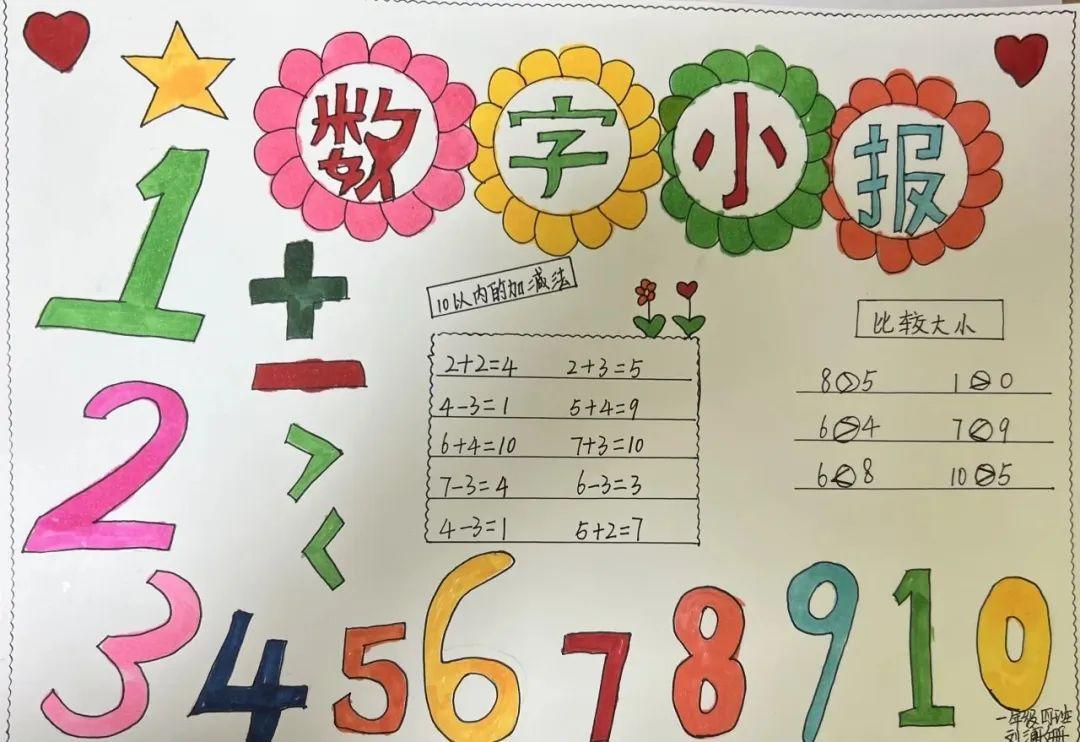 数字小报
1
+
10以内的加减法
比较大小
-
2+2=4 2+3=5
8>5 1>0
2
4-3=1 5+4=9
>
6+4=10 7+3=10
6>4 7<9
7-3=4 6-3=3
6<8 10>5
<
4-3=1 5+2=7
3 4 5 6 7 8 9 10
一年级四班
刘